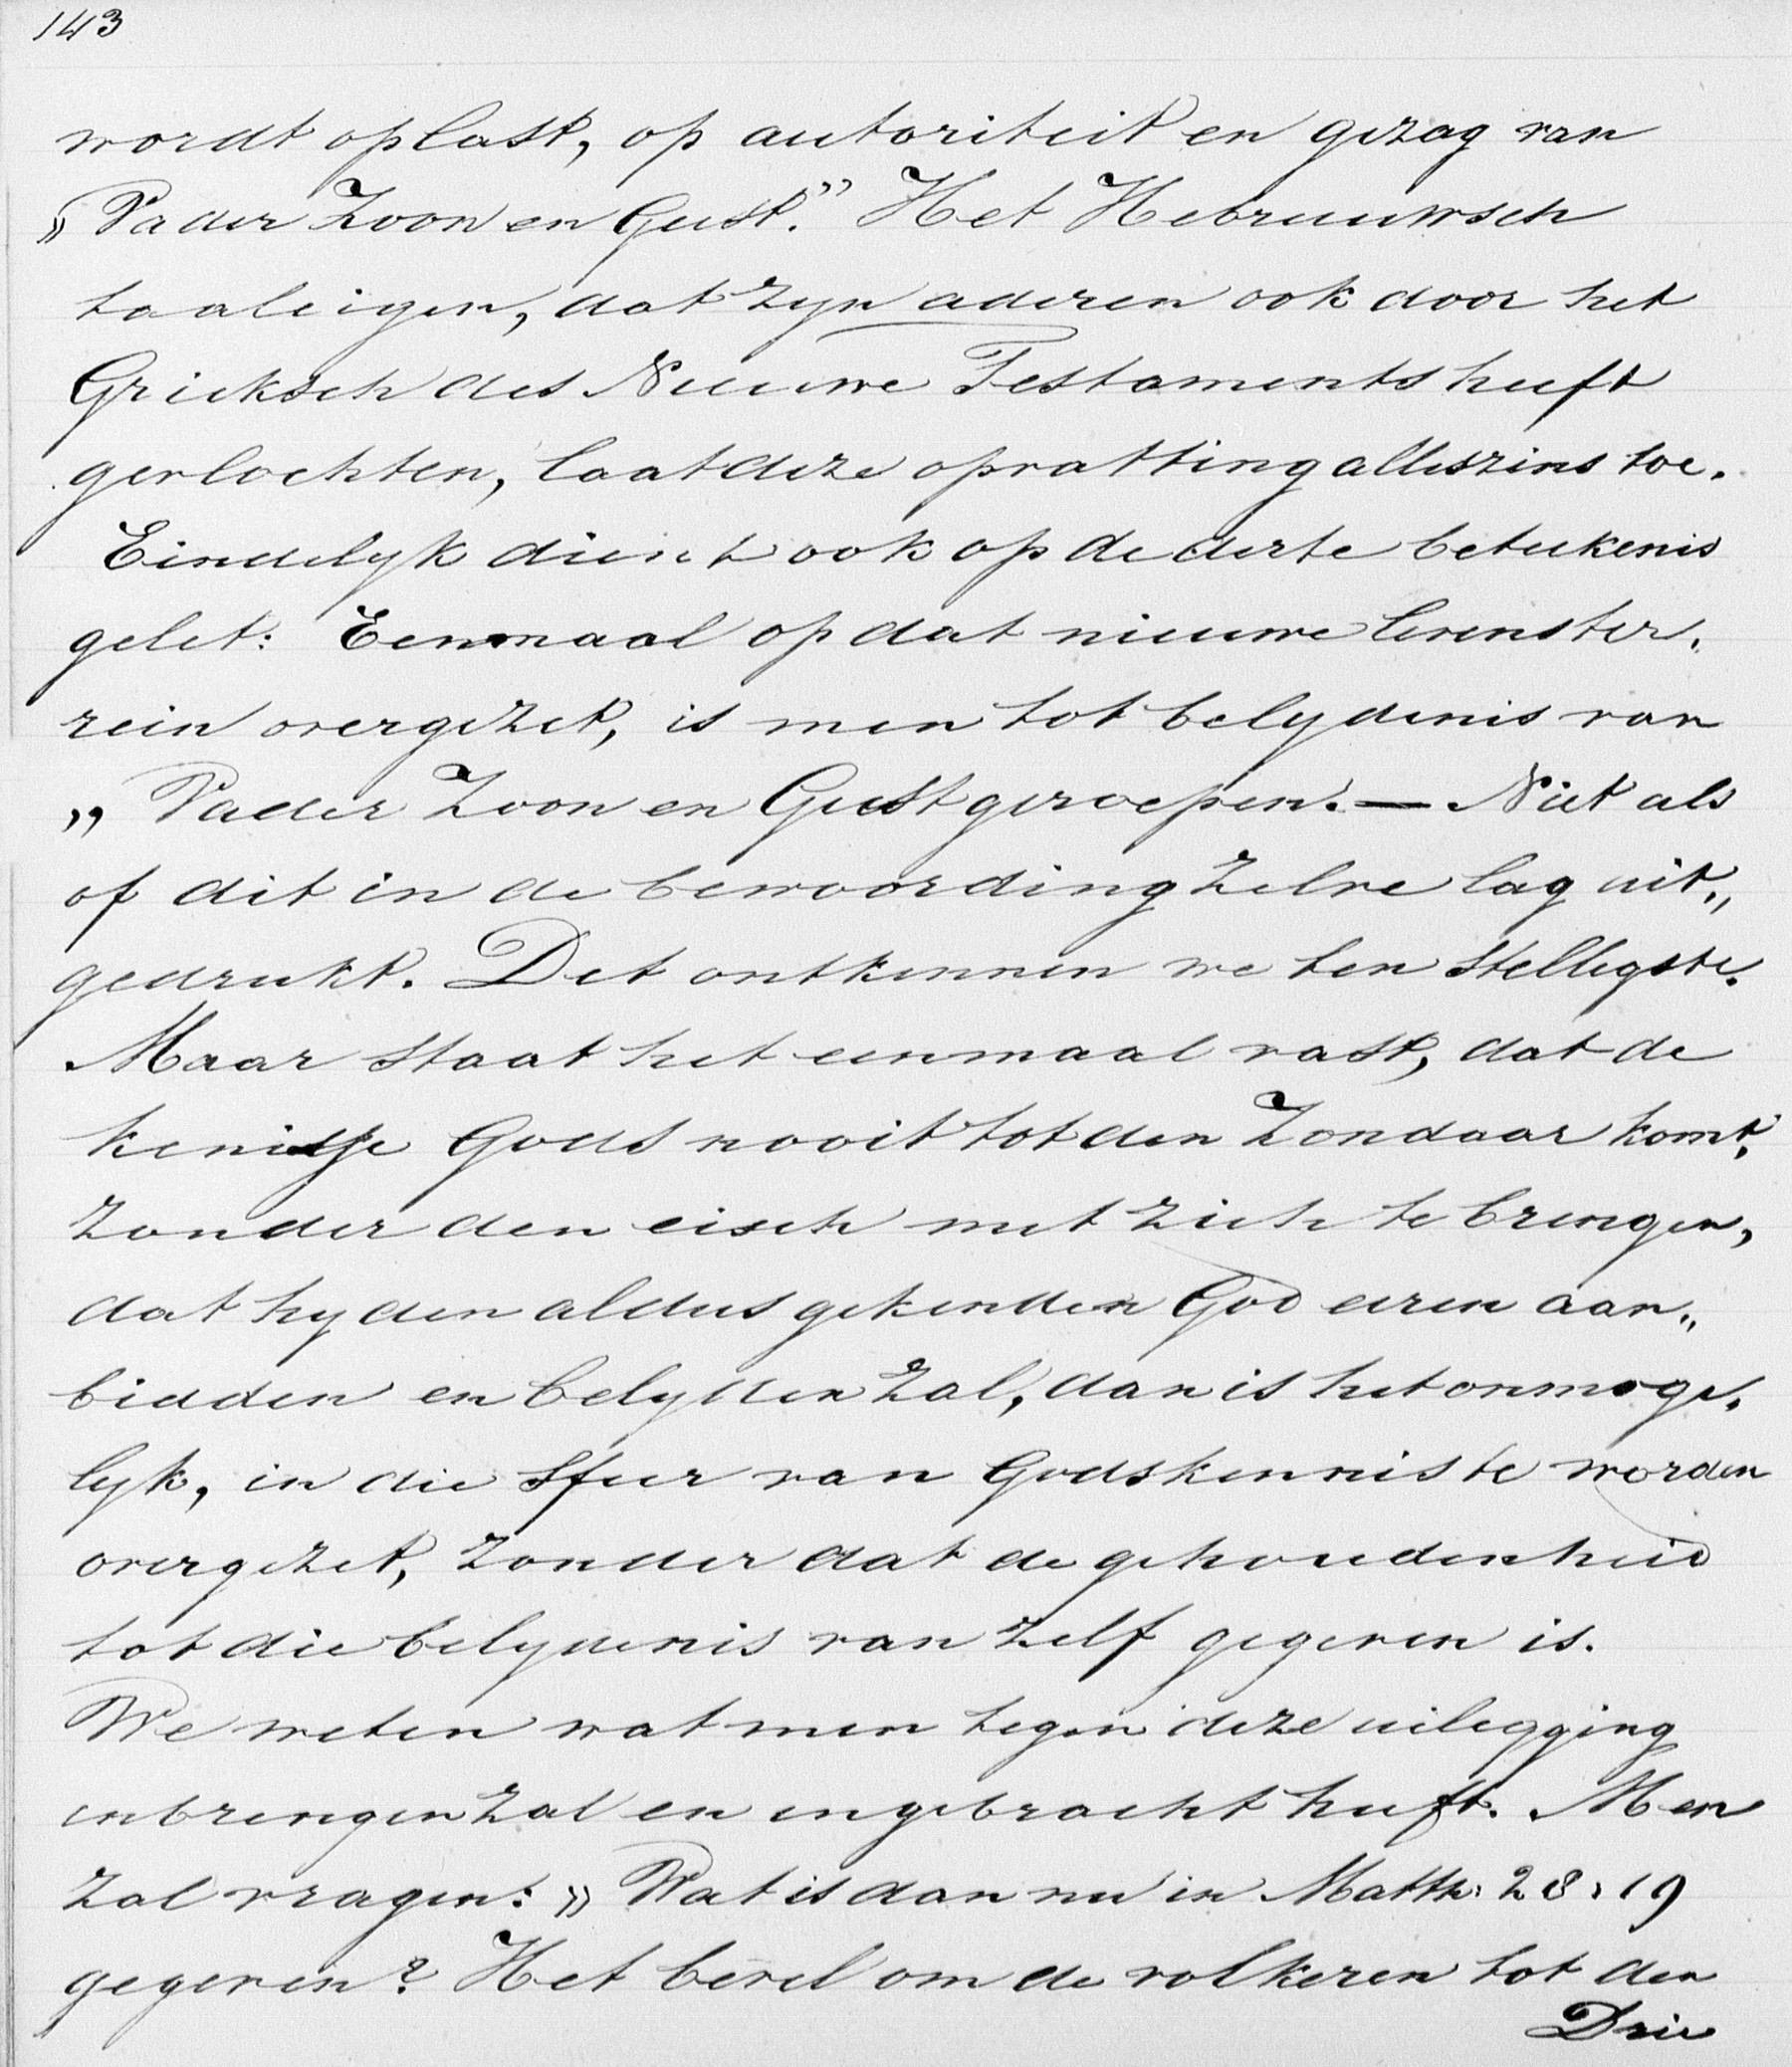 143
wordt op last, op autoriteit en gezag van
„Vader Zoon en Geest.” Het Hebreeuwsch
taaleigen, dat zyn aderen ook door het
Grieksch des Nieuwe Testaments heeft
gevlochten, laat deze opvatting alleszins toe.
Eindelyk dient ook op de derte beteekenis
gelet: Eenmaal op dat nieuwe levenster„
rein overgezet, is men tot belydenis van
„Vader Zoon en Geest geroepen. — Niet als
of dit in de bewoording zelve lag uit„
gedrukt. Det ontkennen we ten stelligste.
Maar staat het eenmaal vast, dat de
kenisse Gods nooit tot den Zondaar komt,
zonder den eisch met zich te brengen,
dat hy den aldus gekenden God eeren aan„
bidden en belyden zal, dan is het onmoge„
lyk, in die sfeer van Godskennis te worden
overgezet, zonder dat de gehoudenheid
tot die belydenis van zelf gegeven is.
We weten wat men tegen deze uilegging
inbrengen zal en ingebracht heeft. Men
zal vragen: „Wat is dan nu in Matth: 28:19
gegeven? Het bevel om de volkeren tot den
Drie